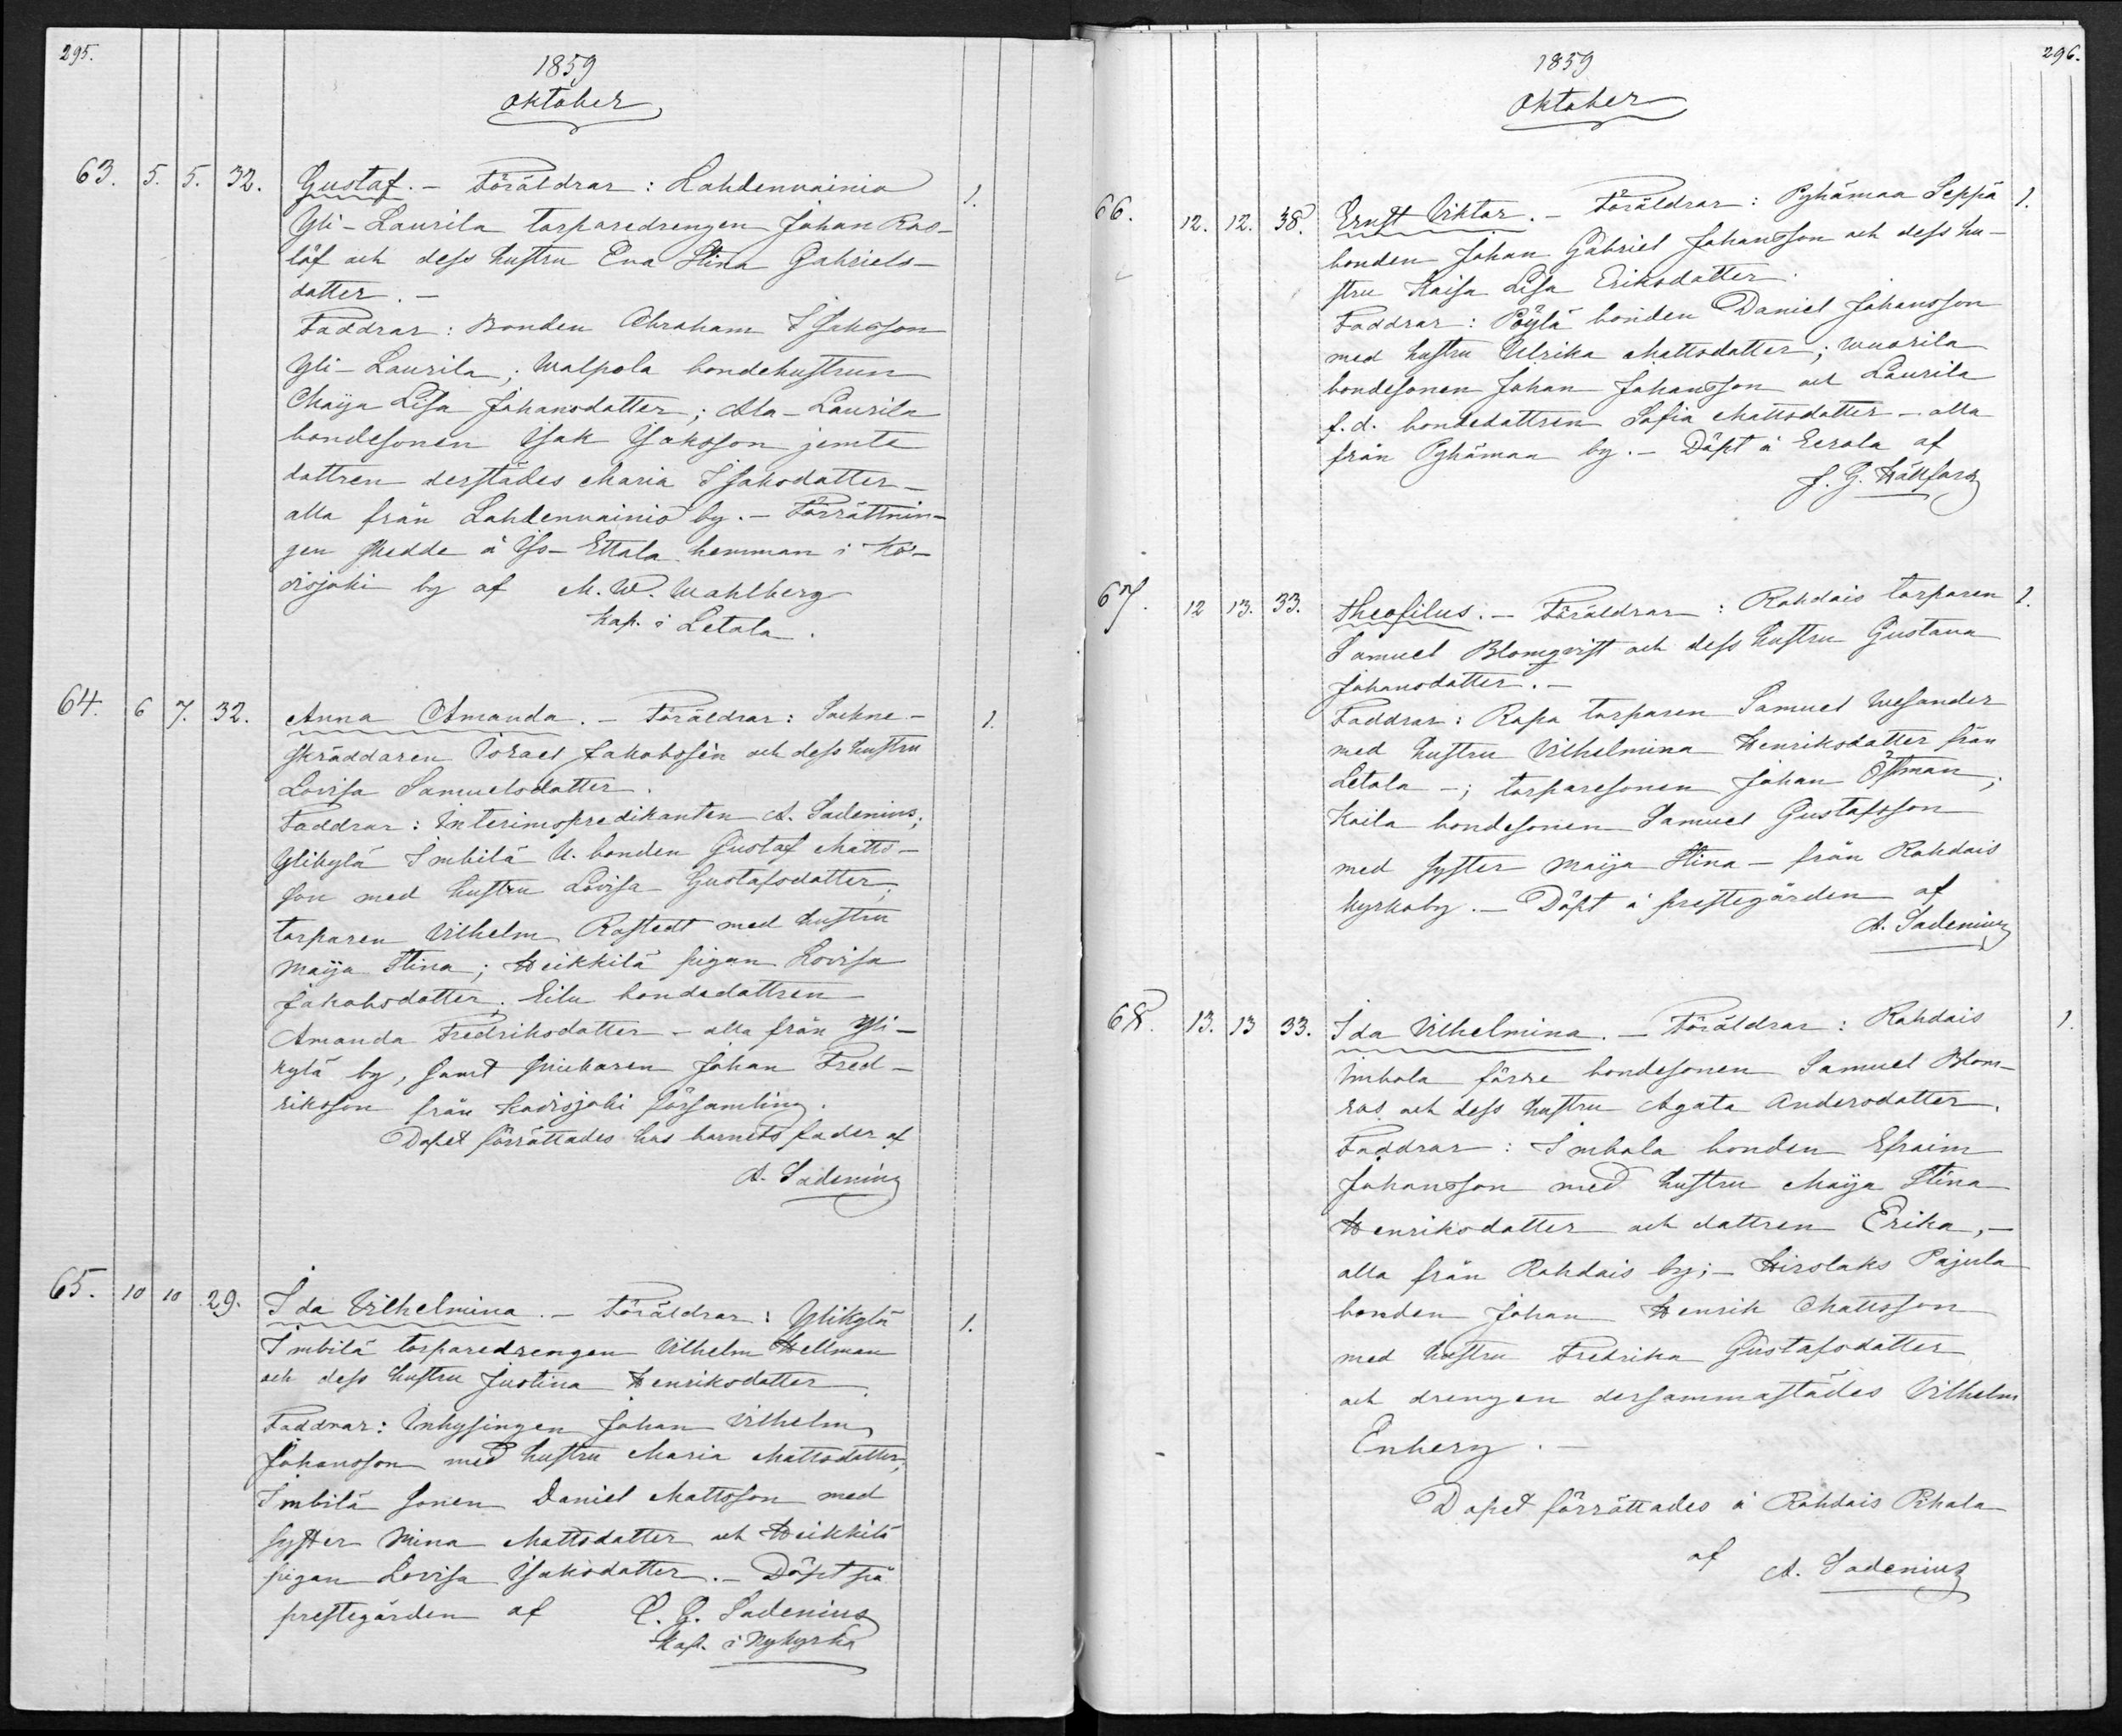 295.
1859
Oktober
63. 5. 5. 32. Gustaf. — Föräldrar: Lahdenvainio 1.
Yli-Laurila torparedrengen Johan Ros-
löf och dess hustru Eva Stina Gabriels-
dotter. —
Faddrar: Bonden Abraham Isaksson
Yli-Laurila; Walpola bondehustrun
Maija Lisa Johansdotter; Ala-Laurila
bondesonen Isak Isaksson jemte
dottren derstädes Maria Isaksdotter —
alla från Lahdenvainio by. — Förrättnin-
gen skedde å Iso-Ettala hemman i Ko-
disjoki by af M. W. Wahlberg
Kap. i Letala.
64. 6 7. 32. Anna Amanda. — Föräldrar: Sockne- 1.
skräddaren Israel Jakobsson och dess hustru
Lovisa Samuelsdotter.
Faddrar: Interimspredikanten A. Sadenius;
Ylikylä Imbilä U. bonden Gustaf Matts-
son med hustru Lovisa Gustafsdotter;
torparen Vilhelm Rostedt med hustru
Maija Stina; Heikkilä pigan Lovisa
Jakobsdotter; Eilu bondedottren
Amanda Fredriksdotter — alla från Yli-
kylä by, samt snickaren Johan Fred-
riksson från Kodisjoki församling.
Dopet förrättades hos barnets fader af
A. Sadenius
65. 10 10 29. Ida Vilhelmina. — Föräldrar: Ylikylä 1.
Imbilä torparedrengen Vilhelm Hellman
och dess hustru Justina Henriksdotter.
Faddrar: Inhysingen Johan Vilhelm
Johansson med hustru Maria Mattsdotter;
Imbilä sonen Daniel Mattsson med
syster Mina Mattsdotter och Heikkilä
pigan Lovisa Isaksdotter. — Döpt på
prestegården af C. G. Sadenius
Kap. i Nykyrka
296.
1859
Oktober
66. 12. 12. 38. Ernst Viktor. — Föräldrar: Pyhämaa Seppä 1.
bonden Johan Gabriel Johansson och dess hu-
stru Kaisa Lisa Eriksdotter.
Faddrar: Pöylä bonden Daniel Johansson
med hustru Ulrika Mattsdotter; Wuorila
bondesonen Johan Johansson och Laurila
f.d. bondedottren Sofia Mattsdotter — alla
från Pyhämaa by. — Döpt å Eerola af
J. G. Hällfors
67. 12 13. 33. Theofilus. — Föräldrar: Rohdais torparen 1.
Samuel Blomqvist och dess hustru Gustava
Johansdotter. —
Faddrar: Rapa torparen Samuel Wesander
med hustru Vilhelmina Henriksdotter från
Letala —; torparesonen Johan Östman;
Kaila bondesonen Samuel Gustafsson
med syster Maija Stina — från Rohdais
kyrkoby. — Döpt å prestegården af
A. Sadenius
68. 13. 13 33. Ida Vilhelmina. — Föräldrar: Rohdais 1.
Imbola förre bondesonen Samuel Blom-
ros och dess hustru Agata Andersdotter.
Faddrar: Imbola bonden Efraim
Johansson med hustru Maija Stina
Henriksdotter och dottren Erika, —
alla från Rohdais by; — Hirslaks Pajula
bonden Johan Henrik Mattsson
med hustru Fredrika Gustafsdotter
och drengen dersammastädes Vilhelm
Enberg. —
Dopet förrättades å Rohdais Pihala
af A. Sadenius